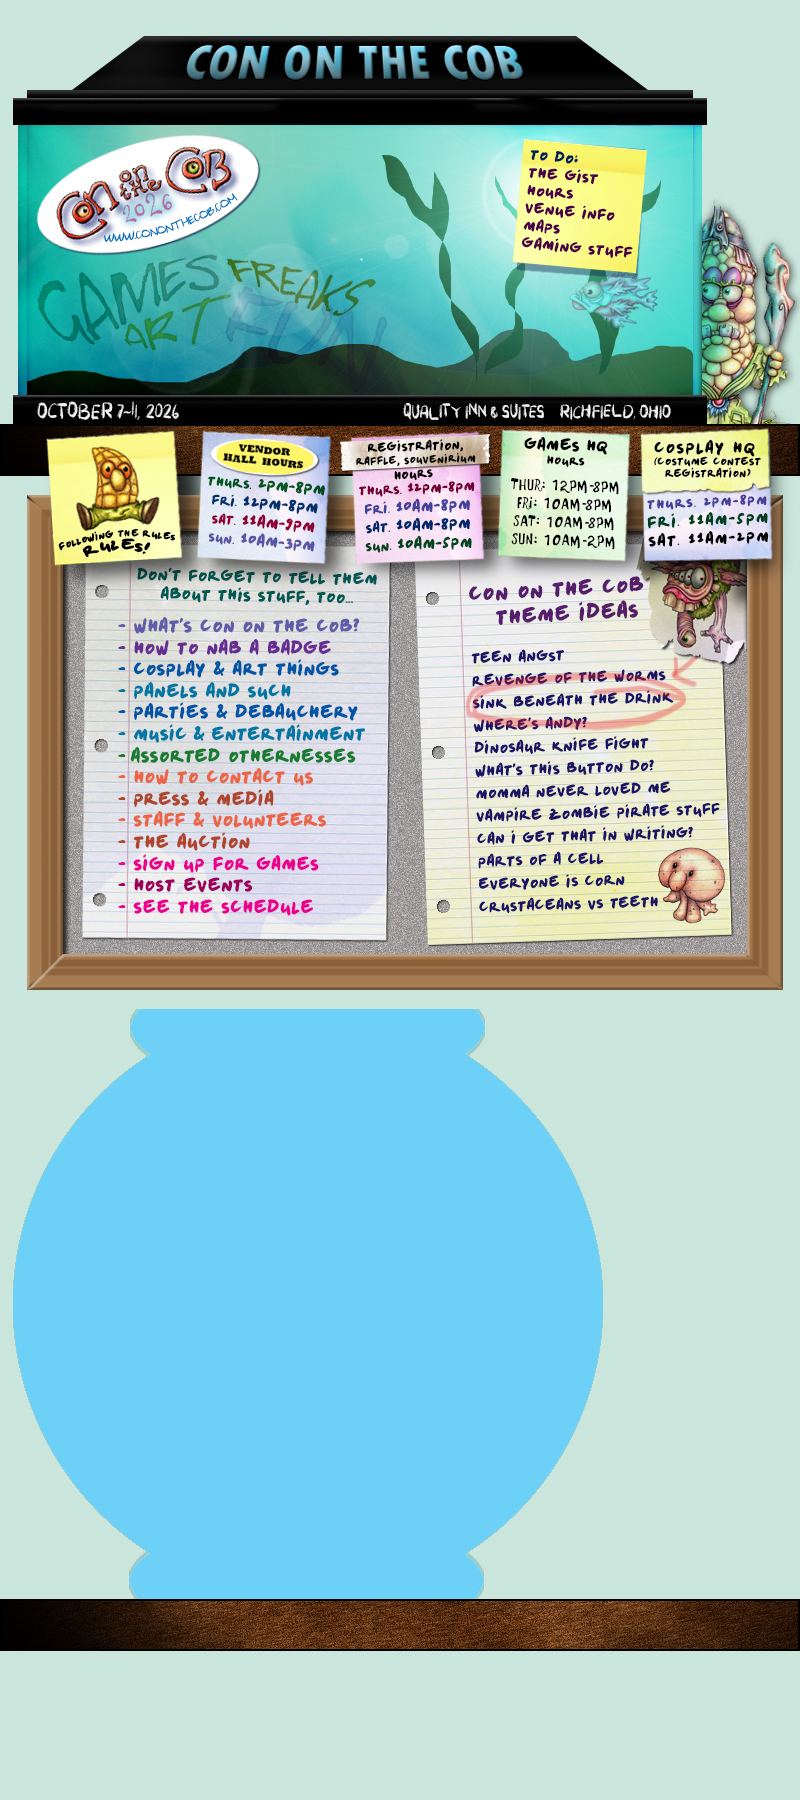 CON ON THE COB
Con on the Cob
2026
WWW.CONONTHECOB.COM
GAMES FREAKS
ART FUN
TO DO:
THE GIST
HOURS
VENUE INFO
MAPS
GAMING STUFF
OCTOBER 7-11, 2026
QUALITY INN & SUITES RICHFIELD, OHIO
FOLLOWING THE RULES
RULES!
VENDOR
HALL HOURS
THURS. 2PM-8PM
FRI. 12PM-8PM
SAT. 11AM-9PM
SUN. 10AM-3PM
REGISTRATION,
RAFFLE, SOUVENIRIUM
HOURS
THURS. 12PM-8PM
FRI. 10AM-8PM
SAT. 10AM-8PM
SUN. 10AM-5PM
GAMES HQ
HOURS
THUR: 12PM-8PM
FRI: 10AM-8PM
SAT: 10AM-8PM
SUN: 10AM-2PM
COSPLAY HQ
(COSTUME CONTEST
REGISTRATION)
THURS. 2PM-8PM
FRI. 11AM-5PM
SAT. 11AM-2PM
DON'T FORGET TO TELL THEM
ABOUT THIS STUFF, TOO...
- WHAT'S CON ON THE COB?
- HOW TO NAB A BADGE
- COSPLAY & ART THINGS
- PANELS AND SUCH
- PARTIES & DEBAUCHERY
- MUSIC & ENTERTAINMENT
- ASSORTED OTHERNESSES
- HOW TO CONTACT US
- PRESS & MEDIA
- STAFF & VOLUNTEERS
- THE AUCTION
- SIGN UP FOR GAMES
- HOST EVENTS
- SEE THE SCHEDULE
CON ON THE COB
THEME IDEAS
TEEN ANGST
REVENGE OF THE WORMS
SINK BENEATH THE DRINK
WHERE'S ANDY?
DINOSAUR KNIFE FIGHT
WHAT'S THIS BUTTON DO?
MOMMA NEVER LOVED ME
VAMPIRE ZOMBIE PIRATE STUFF
CAN I GET THAT IN WRITING?
PARTS OF A CELL
EVERYONE IS CORN
CRUSTACEANS VS TEETH